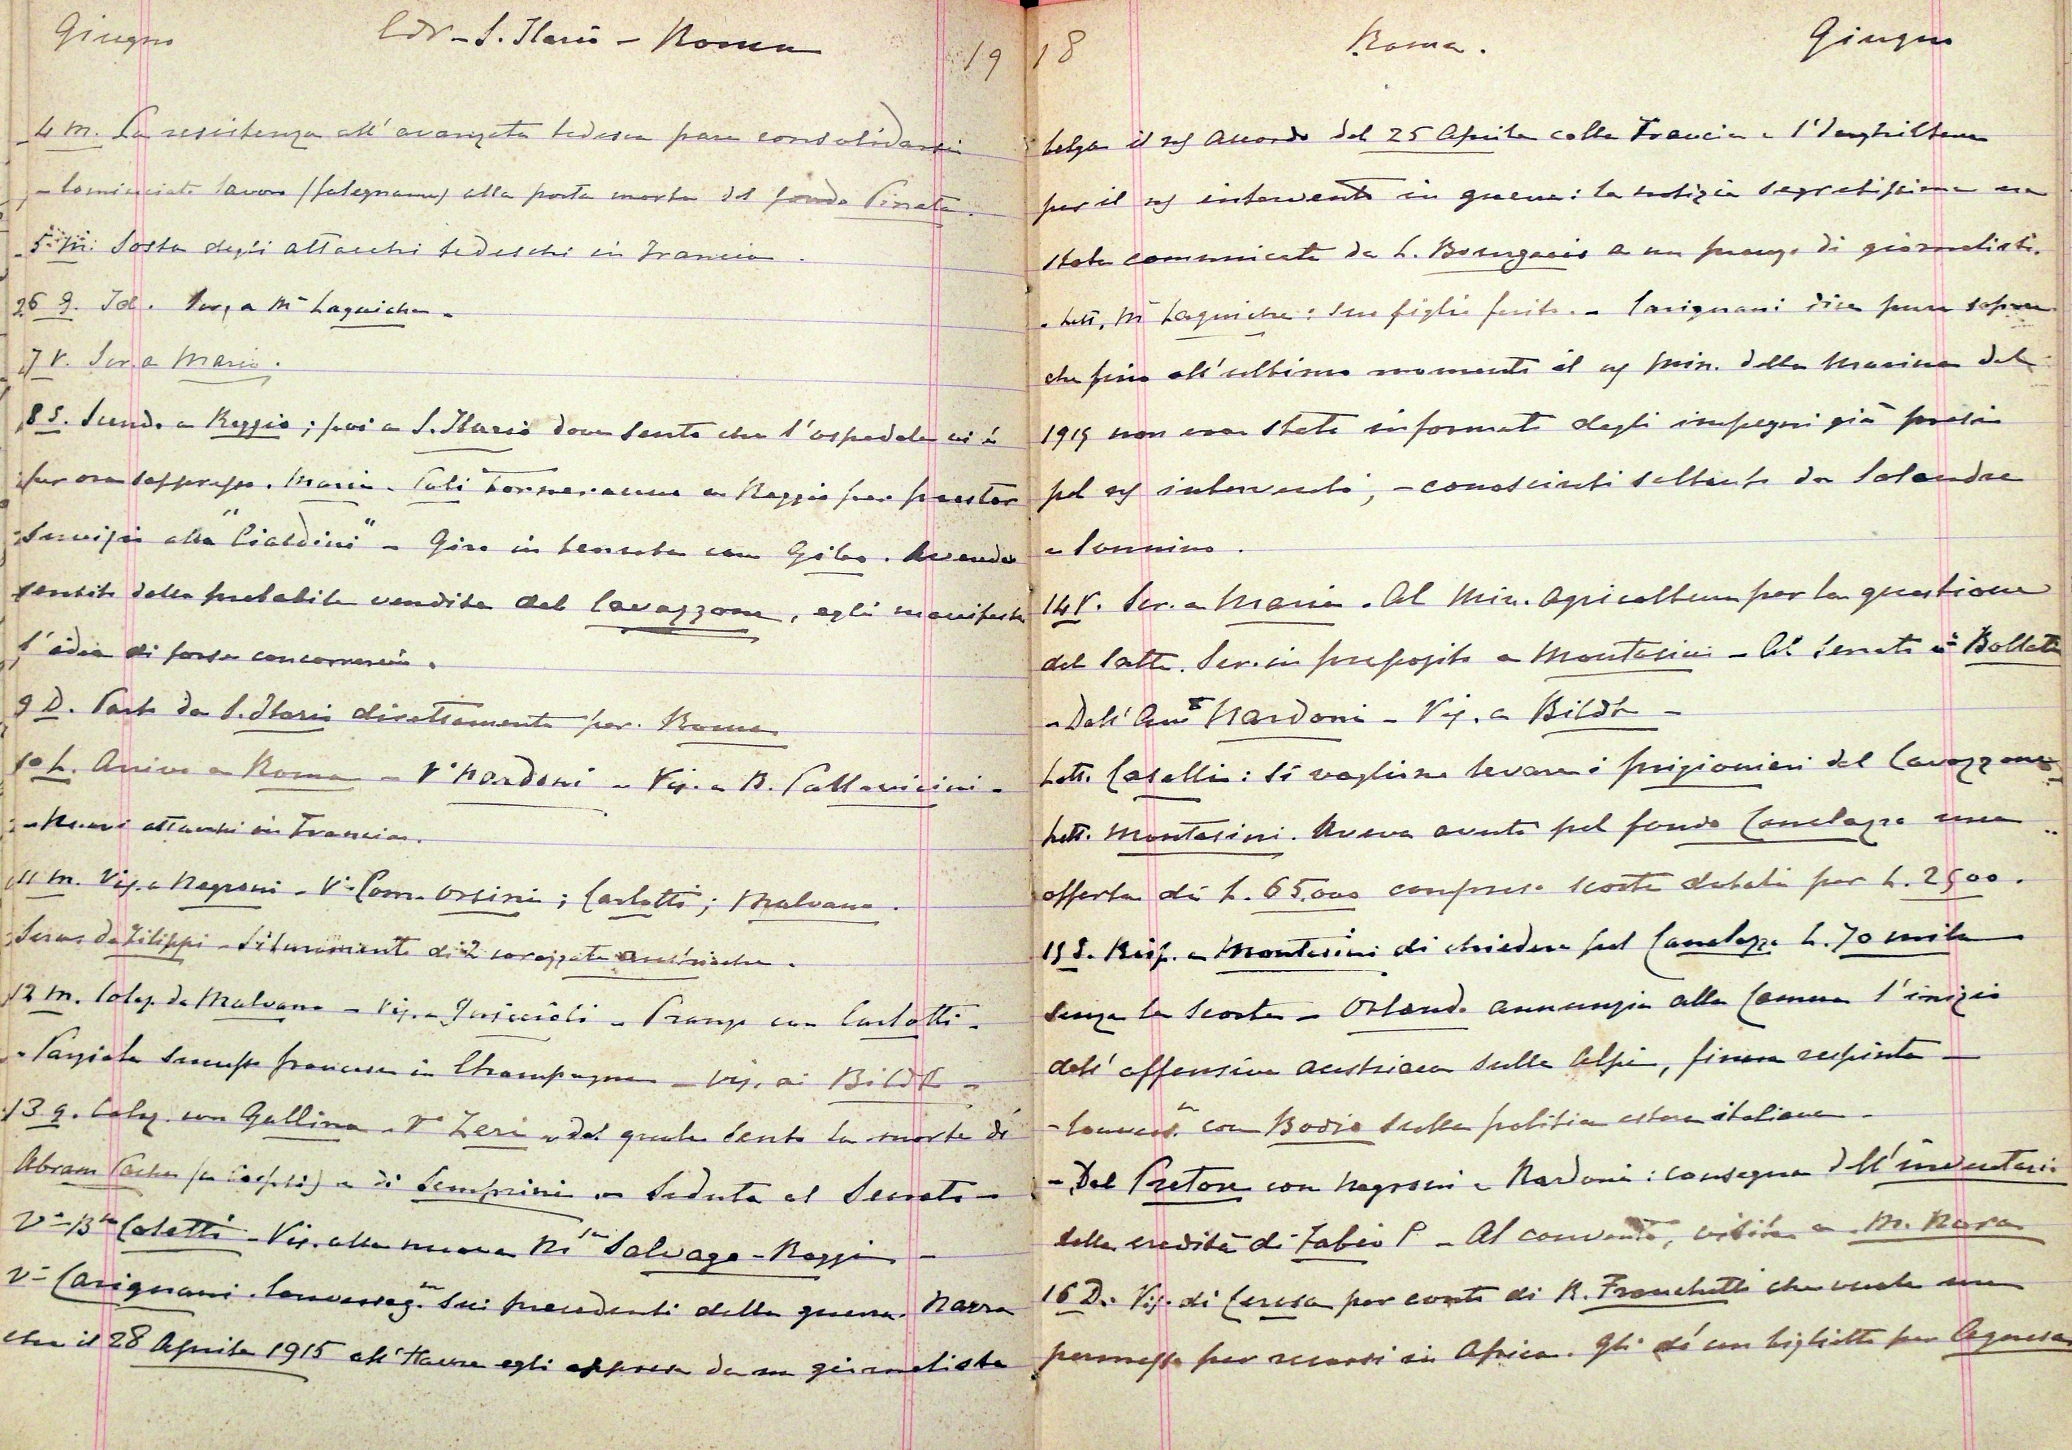 Giugno CdV - S. Ilario - Roma 19
4 M. La resistenza all'avanzata tedesca pare consolidarsi
- Cominciato lavoro (falegname) alla porta morta del fondo Pirata.
5 M. Sosta degli attacchi tedeschi in Francia.
6 G. Id. a M. Laguiche.
7 V. Scr. a Maria.
8 S. Scendo a Reggio; poi a S. Ilario dove sento che l'ospedale vi è
per ora soppresso. Maria e torneranno a Reggio per prestar
servizio alla "Cialdini" - Giro in con . Avendo
sentito della probabile vendita del Cavazzone, egli manifesta
l'idea di forse concorrervi.
9 D. Parto da S. Ilario direttamente per Roma
10 L. Arrivo a Roma - Vª Nardoni - Vis. a B. Pallavicini -
- Nuovi attacchi in Francia.
11 M. Vis. a Negroni - Vª Com. Orsini; Carlotti; Malvano.
de Filippi - Siluramento di 2 corazzate austriache.
12 M. Colaz. da Malvano - Vis. a - Pranzo con Carlotti -
- Parziale successo francese in Champagne - Vis. ai Bildt -
13 G. Colaz. con Gallina - Vª Zeri dal quale sento la morte di
Abram Pacha e di Semprini - Seduta al Senato -
Vª Bne Coletti - Vis. alla nuova Mª Salvago-Raggi -
Vª Carignani. Conversaz.ne sui precedenti della guerra. Narra
che il 28 Aprile 1915 all'Havre egli apprese da un giornalista
18 Roma. Giugno
belga il ns/ accordo del 25 Aprile colla Francia e l'Inghilterra
per il ns/ intervento in guerra: la notizia segretissima era
stata comunicata da L. Bourgeois a un pranzo di giornalisti.
- Lett. M. Laguiche: suo figlio ferito. - Carignani dice pure sapere
che fino all'ultimo momento il ns/ Min. della Marina del
1915 non era stato informato degli impegni già presi
pel ns/ intervento, - conosciuti soltanto da Salandra
e Sonnino.
14 V. Scr. a Maria. Al Min. Agricoltura per la questione
del latte. Scr. in proposito a Montasini - Al Senato Bollati
- Dall' Nardoni - Vis. a Bildt -
Lett. Caselli: si vogliono levare i prigionieri dal Cavazzone
Lett. Montasini. Aveva avuto pel fondo Canalazzo una
offerta di L. 65.000 compreso scorte debali per L. 2500.
15 S. Risp. a Montasini di chiedere pel Canalazzo L. 70 mila
senza le scorte - Orlando annunzia alla Camera l'inizio
dell'offensiva austriaca sulle Alpi, finora respinta -
- Convers.ne con Bodio sulla politica estera italiana -
- Dal Pretore con Negroni e Nardoni: consegna dell'inventario
della eredità di Fabio P - Al convento, visita a M. Nora
16 D. Vis. di Ceresa per conto di R. Franchetti che vuole un
permesso per recarsi in Africa. Gli dò un biglietto per Agnesa